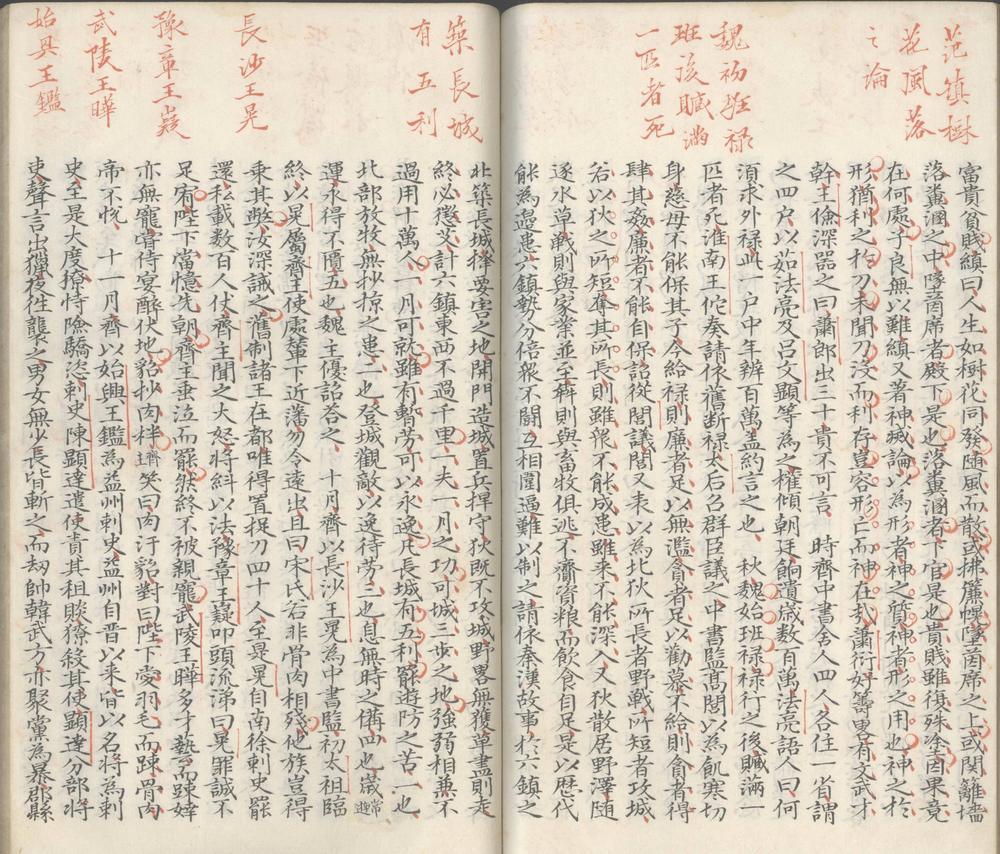 范縝樹
花風落
之論
魏初班禄
班後贓滿
一匹者死
富貴貧賤縝曰人生如樹花同發随風而散或拂簾幌墜茵席之上或関籬墻
落糞溷之中墜茵席者殿下是也落糞溷者下官是也貴賤雖復殊途因果竟
在何處子良無以難縝又著神滅論以為形者神之質神者形之用也神之於
形猶利之於刀未聞刀没而利存豈容形亡而神在哉蕭衍好籌畧有文武才
幹王儉深器之曰蕭郎出三十貴不可言 時齊中書舍人四人各住一省謂
之四户以茹法亮及呂文顯等為之權傾朝廷餉遺歲数百萬法亮語人曰何
須求外禄此一户中年辨百萬盖約言之也 秋魏始班禄禄行之後贓滿一
匹者死淮南王佗奏請依舊断禄太后召群臣議之中書監髙閭以為飢寒切
身慈母不能保其子今給禄則廉者足以無濫貪者足以勸慕不給則貪者得
肆其姦廉者不能自保詔從閭議閭又表以為北狄所長者野戰所短者攻城
若以狄之所短奪其所長則雖衆不能成患雖来不能深入又狄散居野澤随
逐水草戰則與家業並至奔則與畜牧俱逃不齎資粮而飲食自足是以歴代
能為邉患六鎮勢分倍衆不闘互相圍逼難以制之請依秦漢故事於六鎮之
築長城
有五利
長沙王晃
豫章王嶷
武陵王曄
始具王鑑
北築長城擇要害之地開門造城置兵捍守狄既不攻城野畧無獲草盡則走
終必懲艾計六鎮東西不過千里一夫一月之功可城三步之地強弱相兼不
過用十萬人一月可就雖有暫劳可以永逸凢長城有五利罷遊防之苦一也
北部放牧無抄掠之患二也登城觀敵以逸待劳三也息無時之俻四也歲常遊
運永得不匱五也魏主優詔荅之 十月齊以長沙王晃為中書監初太祖臨
終以晃屬齊王使處輦下近藩勿令遠出且曰宋氏若非骨肉相殘他族豈得
乗其獘汝深誡之舊制諸王在都唯得置捉刀四十人至是晃自南徐刺史罷
還私載数百人仗齊主聞之大怒将糾以法豫章王嶷叩頭流涕曰晃罪誠不
足宥陛下當憶先朝齊主垂泣而罷然終不被親寵武陵王曄多才藝而踈婞
亦無寵甞侍宴醉伏地貂抄肉柈齊主笑曰肉汙貂對曰陛下愛羽毛而踈骨肉
帝不恱 十一月齊以始興王鑑為益州刺史益州自晋以来皆以名将為刺
史至是大度獠恃險驕恣刺史陳顯達遣使責其租賧獠殺其使顯達分部将
吏聲言出獵夜徃襲之男女無少長皆斬之而刼帥韓武方亦聚黨為暴郡縣